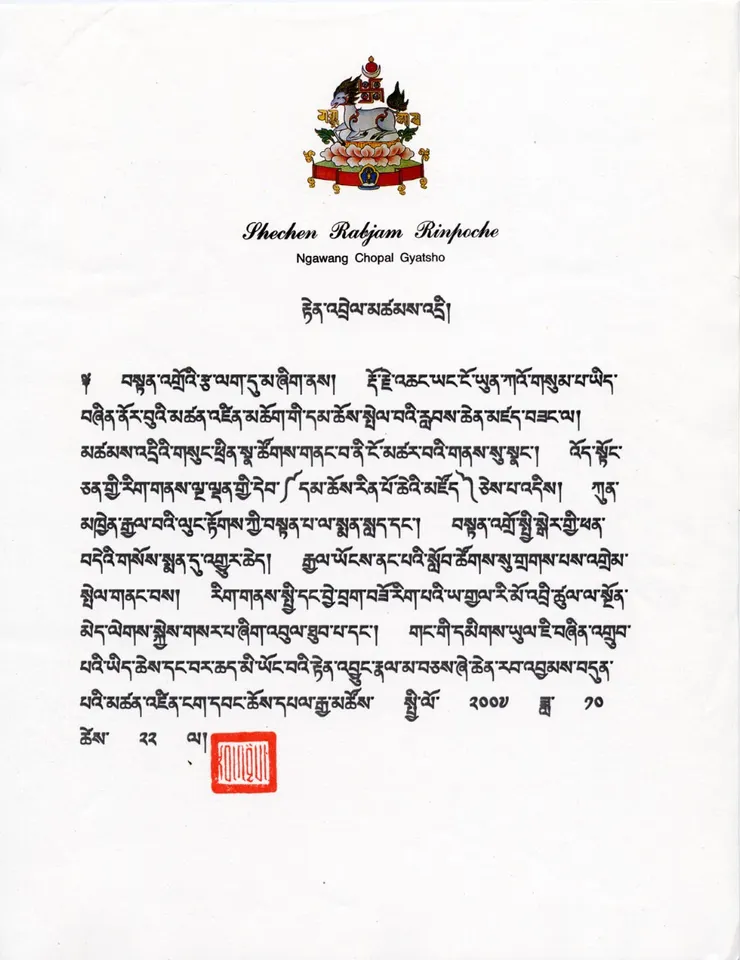 Shechen Rabjam Rinpoche
Ngawang Chopal Gyatsho
རྟེན་འབྲེལ་མཚམས་འདྲི།
༄ བསྟན་འགྲོའི་རྩ་ལག་དུ་མ་ཞིག་ནས། རྡོ་རྗེ་འཆང་ཡང་ངོ་ཡུན་ཀའོ་གསུམ་པ་ཡིད་
བཞིན་ནོར་བུའི་མཚན་འཛིན་མཆོག་གི་དམ་ཆོས་སྤེལ་བའི་རླབས་ཆེན་མཛད་བཟང་ལ།
མཚམས་འདྲིའི་གསུང་ཕྲིན་སྣ་ཚོགས་གནང་བ་ནི་ངོ་མཚར་བའི་གནས་སུ་སྣང་། འོད་སྟོང་
ཅན་གྱི་རིག་གནས་ལྔ་ལྡན་གྱི་དེབ་༼དམ་ཆོས་རིན་པོ་ཆེའི་མཛོད༽ཅེས་པ་འདིས། ཀུན་
མཁྱེན་རྒྱལ་བའི་ལུང་རྟོགས་ཀྱི་བསྟན་པ་ལ་སྨན་སླད་དང་། བསྟན་འགྲོ་སྤྱི་སྒེར་གྱི་ཕན་
བདེའི་གསོས་སྨན་དུ་འགྱུར་ཆེད། རྒྱལ་ཡོངས་ནང་པའི་སློབ་ཚོགས་སུ་གྲགས་པས་འགྲེམ་
སྤེལ་གནང་བས། རིག་གནས་སྤྱི་དང་བྱེ་བྲག་བཟོ་རིག་པའི་ཡ་གྱལ་རི་མོ་འབྲི་ཚུལ་ལ་སྔོན་
མེད་ལེགས་སྐྱེས་གསར་པ་ཞིག་འབུལ་ཐུབ་པ་དང་། གང་གི་དམིགས་ཡུལ་ཇི་བཞིན་འགྲུབ་
པའི་ཡིད་ཆེས་དང་བར་ཆད་མི་ཡོང་བའི་རྟེན་འབྱུང་རྣལ་མ་བཅས་ཞེ་ཆེན་རབ་འབྱམས་བདུན་
པའི་མཚན་འཛིན་ངག་དབང་ཆོས་དཔལ་རྒྱ་མཚོས་ སྤྱི་ལོ་ ༢༠༠༧ ཟླ་ ༡༠
ཚེས་ ༢༢ ལ།